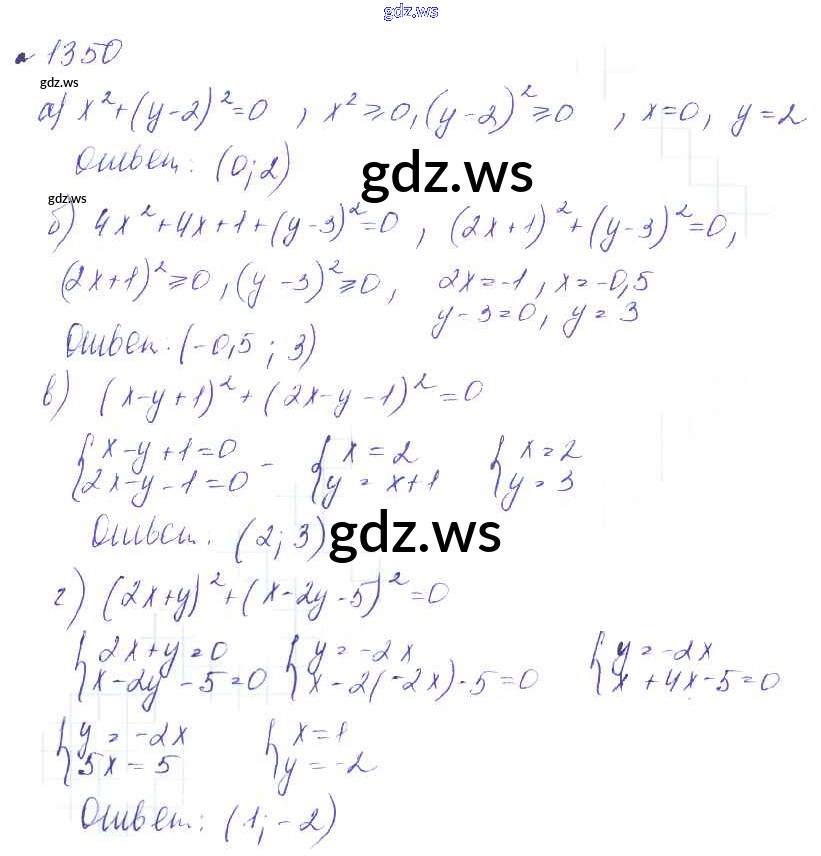 gdz.ws
№ 1350
gdz.ws
а) x²+(y-2)²=0 , x²≥0, (y-2)²≥0 , x=0, y=2
Ответ: (0;2)
gdz.ws
gdz.ws
б) 4x²+4x+1+(y-3)²=0 , (2x+1)²+(y-3)²=0,
(2x+1)²≥0, (y-3)²≥0, 2x=-1, x=-0,5
y-3=0, y=3
Ответ: (-0,5 ; 3)
в) (x-y+1)²+(2x-y-1)²=0
{x-y+1=0 - {x=2 {x=2
{2x-y-1=0 {y=x+1 {y=3
Ответ. (2; 3)
gdz.ws
г) (2x+y)²+(x-2y-5)²=0
{2x+y=0 {y=-2x {y=-2x
{x-2y-5=0 {x-2(-2x)-5=0 {x+4x-5=0
{y=-2x {x=1
{5x=5 {y=-2
Ответ: (1;-2)